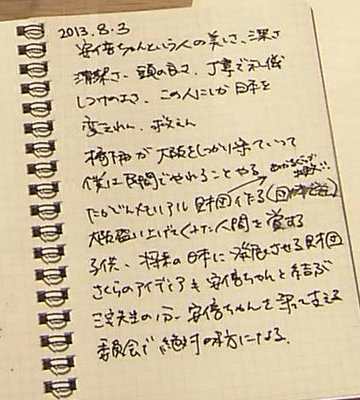 2013.8.3
安倍ちゃんという人の美しさ、深さ
清潔さ、頭の良さ、丁寧で礼儀
しつけのよさ、この人にしか日本を
変えれん、救えん
橋下が大阪をしっかり守っていって
僕は民間でやれることやる
たかじんメモリアル財団作る
大阪盛り上げてくれた人間を賞する
子供、将来の日本に発展させる財団
さくらのアイディアも安倍ちゃんと結ぶ
三宅先生の分、安倍ちゃんを守って支える
委員会で絶対の味方になる.